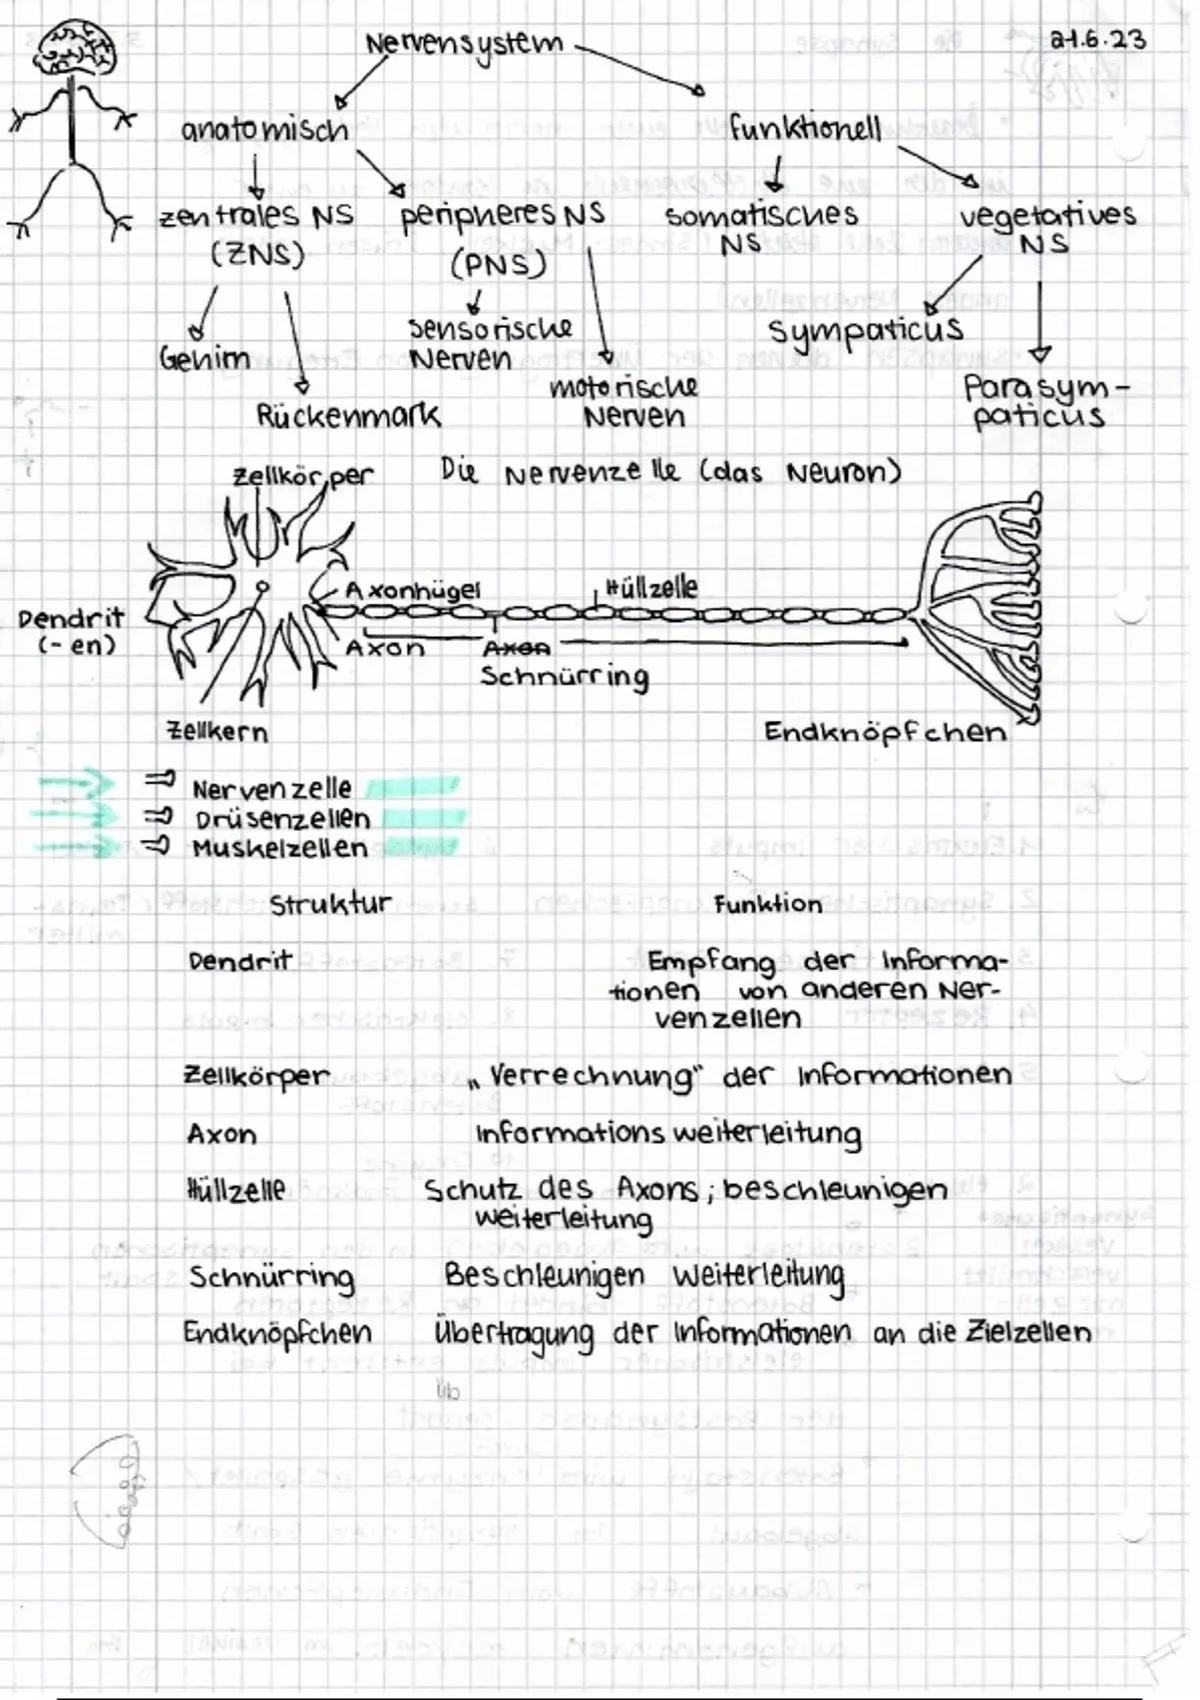 Nervensystem
21.6.23
anatomisch
funktionell
zentrales NS
(ZNS)
peripheres NS
(PNS)
somatisches
NS
vegetatives
NS
Gehirn
Rückenmark
sensorische
Nerven
motorische
Nerven
Sympaticus
Parasym-
paticus
Die Nervenzelle (das Neuron)
Zellkörper
Axonhügel
Hüllzelle
Dendrit
(-en)
Axon
Axon
Schnürring
Zellkern
Endknöpfchen
⇒ Nervenzelle
⇒ Drüsenzellen
⇒ Muskelzellen
Struktur
Funktion
Dendrit
Empfang der Informa-
tionen von anderen Ner-
venzellen
Zellkörper
„Verrechnung“ der Informationen
Axon
Informationsweiterleitung
Hüllzelle
Schutz des Axons; beschleunigen
weiterleitung
Schnürring
Beschleunigen Weiterleitung
Endknöpfchen
Übertragung der Informationen an die Zielzellen
Üb